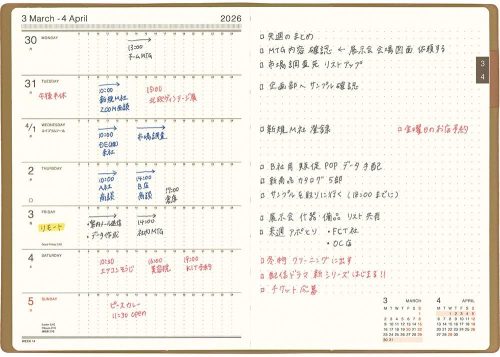 3 March - 4 April
2026
30
MONDAY
月
13:00
チームMTG
31
TUESDAY
火
午後半休
10:00
新規M社
ZOOM面談
15:00
北欧ヴィンテージ展
4/1
WEDNESDAY
水
10:00
市場調査
2
THURSDAY
木
10:00
A社
商談
14:00
B店
商談
17:00
3
FRIDAY
金
リモート
・案内メール送信
・データ作成
14:00
社内MTG
4
SATURDAY
土
10:30
エアコンそうじ
16:00
美容院
5
SUNDAY
日
ピースカレー
11:30 open
WEEK 14
□ 先週のまとめ
□ MTG内容 確認 ← 展示会 会場図面 依頼する
□ 市場調査先 リストアップ
□ 企画部へ サンプル確認
□ 新規M社 登録
□ 金曜日のお店予約
□ B社用 販促POPデータ手配
□ 新商品カタログ 5部
□ サンプルを取りに行く (18:00までに)
□ 展示会 什器・備品 リスト 共有
□ 来週 アポとり ・FCT社
・OCG
□ 冬物 クリーニングに出す
□ 配信ドラマ 新シリーズはじまる!!
□ チケット応募
3
4
3 MARCH
M T W T F S S
4 APRIL
M T W T F S S